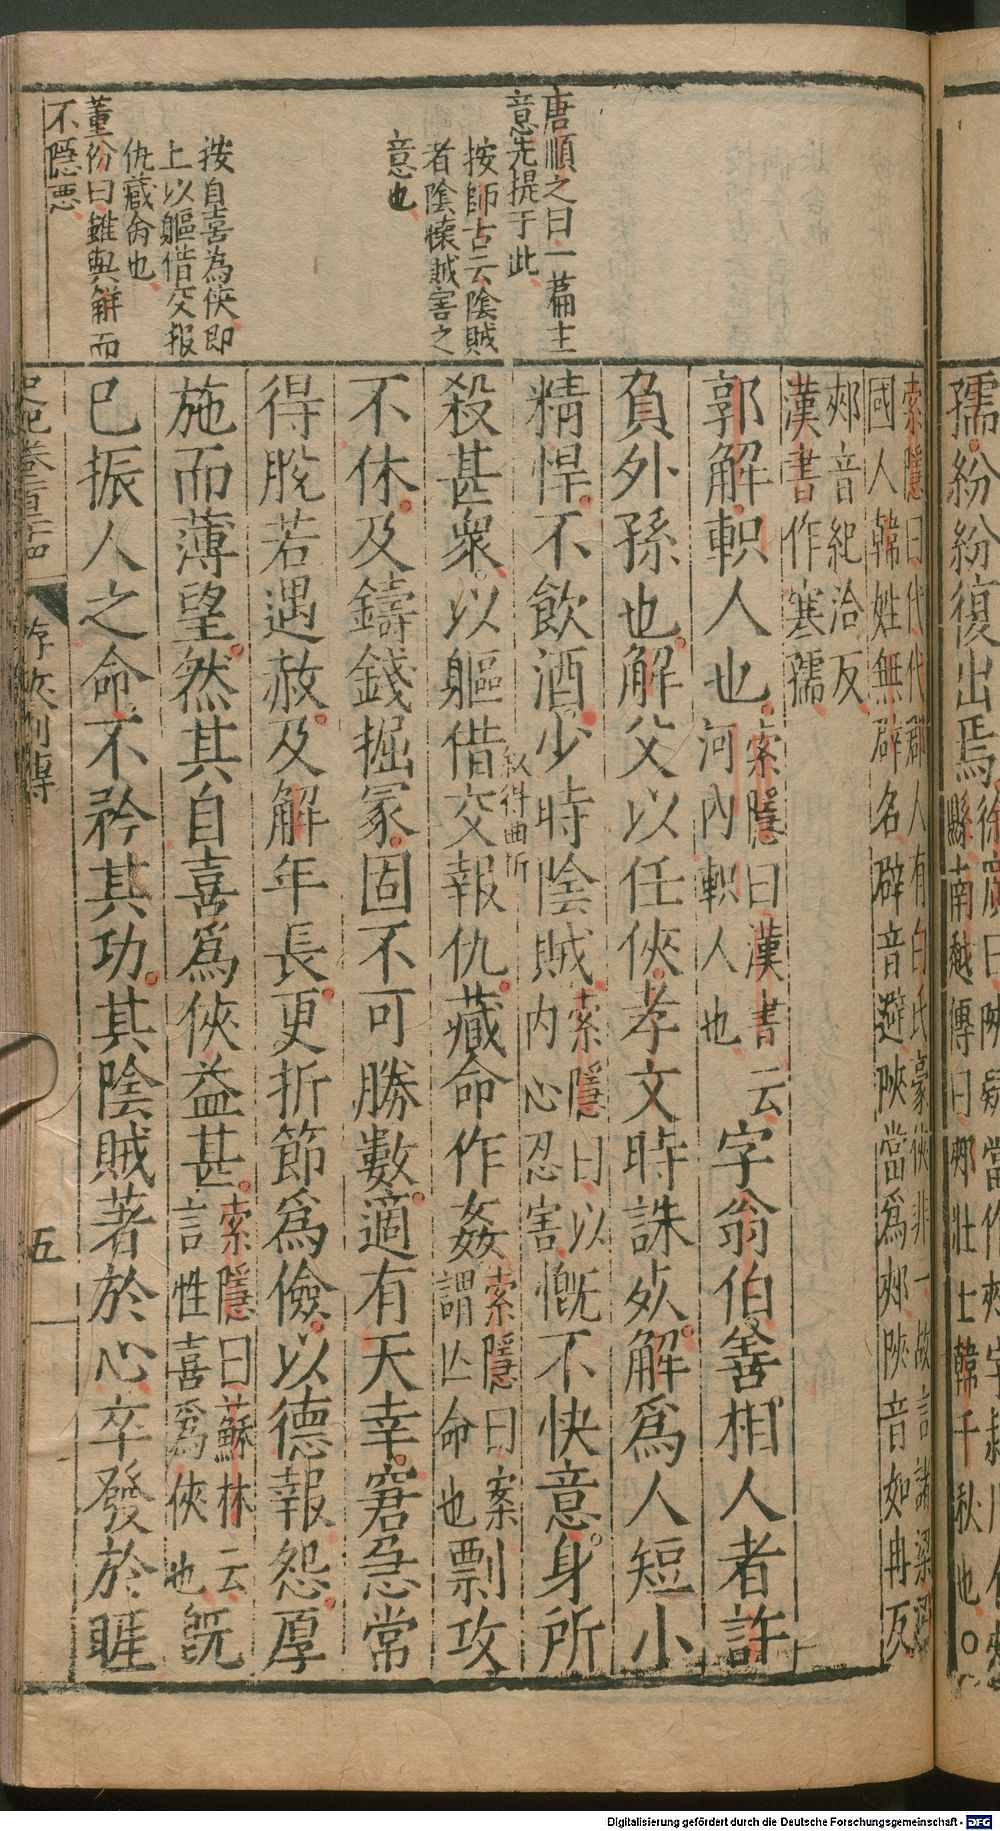 孺紛紛復出焉
縣南越傳曰郟壯士韓千秋也〇
唐順之曰一篇主
意先提于此
按師古云陰賊
者陰懷賊害之
意也
按自喜為俠即
上以軀借交報
仇藏命也
董份曰雖與解而
不隱惡
索隱曰代代郡人有白氏豪俠非一故言諸梁
國人韓姓無辟名辟音避陝當爲郟陝音如冉反
郟音紀洽反
漢書作寒孺
郭解軹人也
索隱曰漢書云
河內軹人也
字翁伯善相人者許
負外孫也解父以任俠孝文時誅死解爲人短小
精悍不飲酒少時陰賊
索隱曰以
內心忍害
慨不快意身所
敘得曲折
殺甚衆以軀借交報仇藏命作姦
索隱曰案
謂亾命也
剽攻
不休及鑄錢掘冢固不可勝數適有天幸窘急常
得脫若遇赦及解年長更折節爲儉以德報怨厚
施而薄望然其自喜爲俠益甚
索隱曰蘇林云
言性喜爲俠也
既
已振人之命不矜其功其陰賊著於心卒發於睚
史記卷一百二十四
游俠列傳
五
Digitalisierung gefördert durch die Deutsche Forschungsgemeinschaft - DFG